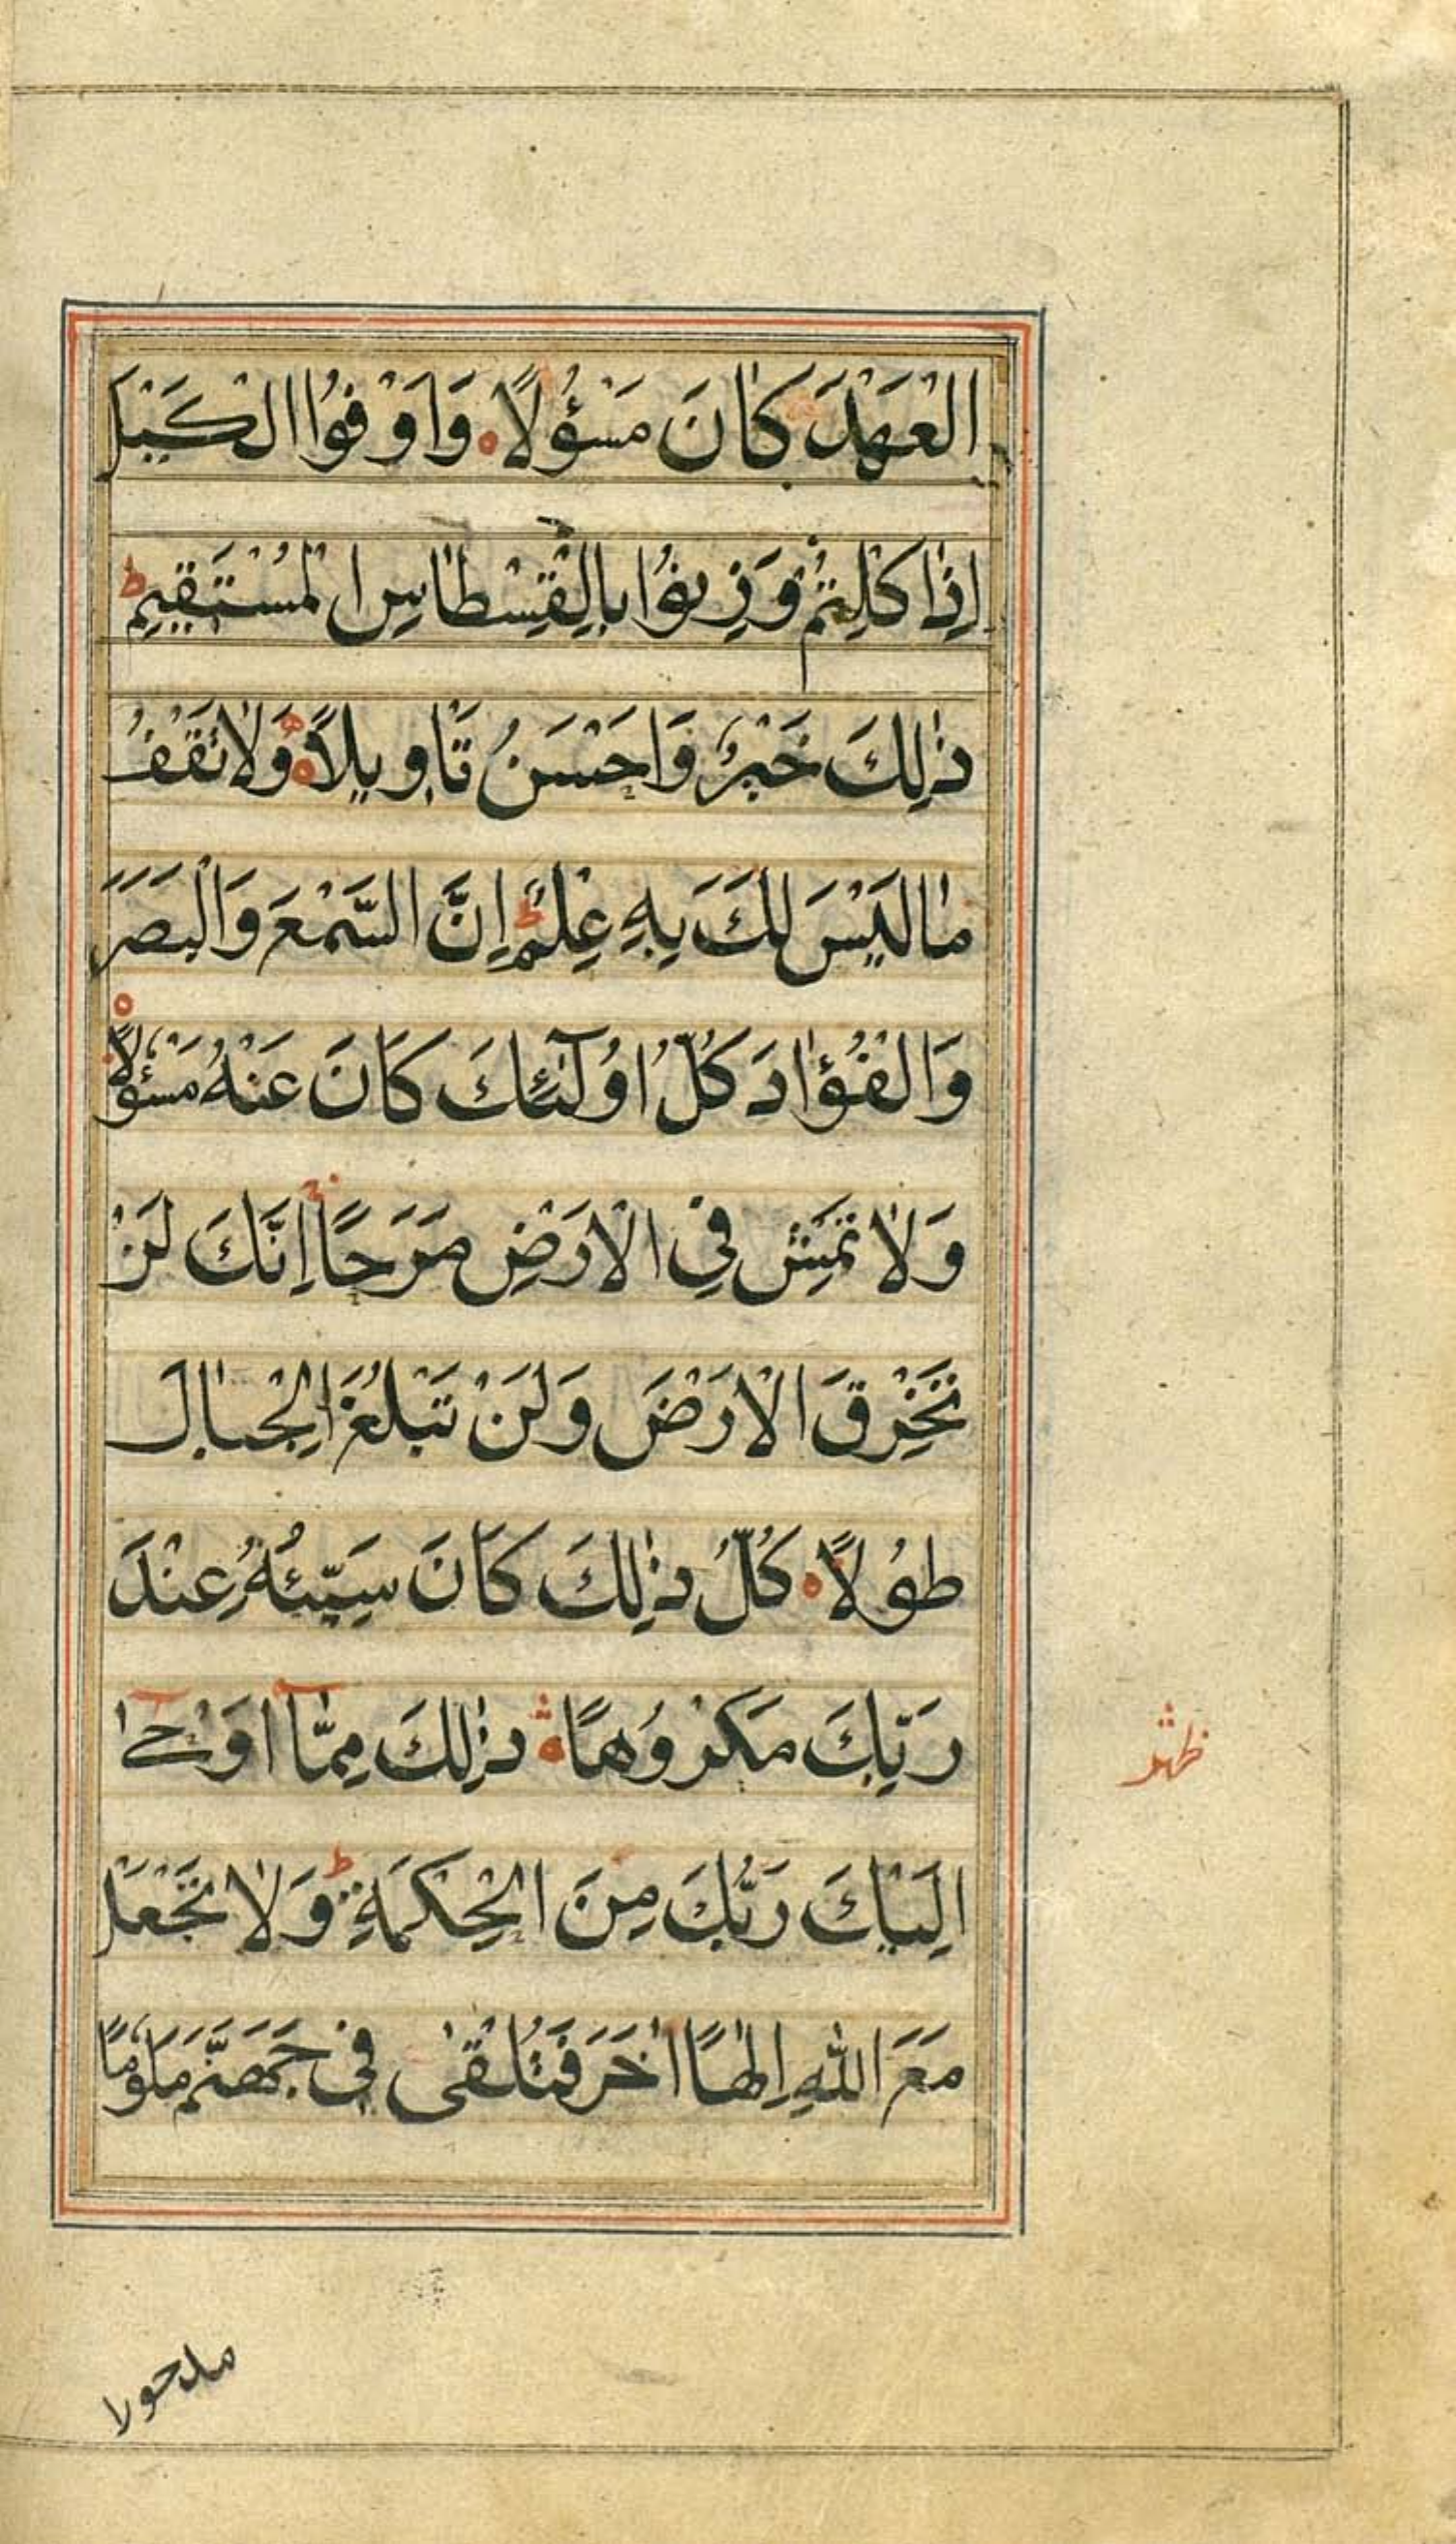 الْعَهْدَ كَانَ مَسْؤُلًا وَاَوْفُوا الْكَيْلَ
اِذَا كِلْتُمْ وَزِنُوْا بِالْقِسْطَاسِ الْمُسْتَقِيْمِ ط
ذٰلِكَ خَيْرٌ وَاَحْسَنُ تَاْوِيْلًا وَلَا تَقْفُ
مَا لَيْسَ لَكَ بِهِ عِلْمٌ ط اِنَّ السَّمْعَ وَالْبَصَرَ
وَالْفُؤَادَ كُلُّ اُولٰٓئِكَ كَانَ عَنْهُ مَسْؤُلًا
وَلَا تَمْشِ فِي الْاَرْضِ مَرَحًا اِنَّكَ لَنْ
تَخْرِقَ الْاَرْضَ وَلَنْ تَبْلُغَ الْجِبَالَ
طُوْلًا كُلُّ ذٰلِكَ كَانَ سَيِّئُهُ عِنْدَ
رَبِّكَ مَكْرُوْهًا ذٰلِكَ مِمَّآ اَوْحٰٓى
اِلَيْكَ رَبُّكَ مِنَ الْحِكْمَةِ ط وَلَا تَجْعَلْ
مَعَ اللّٰهِ اِلٰهًا اٰخَرَ فَتُلْقٰى فِيْ جَهَنَّمَ مَلُوْمًا
مدحورا